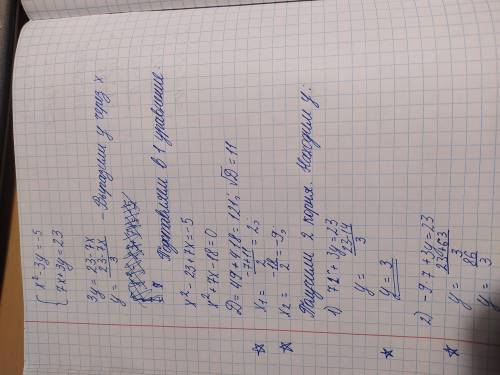 { x² - 3y = -5
7x + 3y = 23
3y = 23 - 7x
y = (23 - 7x)/3 - Выразили y через x
Подставляем в 1 уравнение:
x² - 23 + 7x = -5
x² + 7x - 18 = 0
D = 49 + 4·18 = 121; √D = 11
☆ x₁ = (-7+11)/2 = 2;
☆ x₂ = -18/2 = -9;
2 корня. Находим y:
1) 7·2 + 3y = 23
y = (23-14)/3
☆ y = 3
2) -9·7 + 3y = 23
y = (23+63)/3
☆ y = 86/3